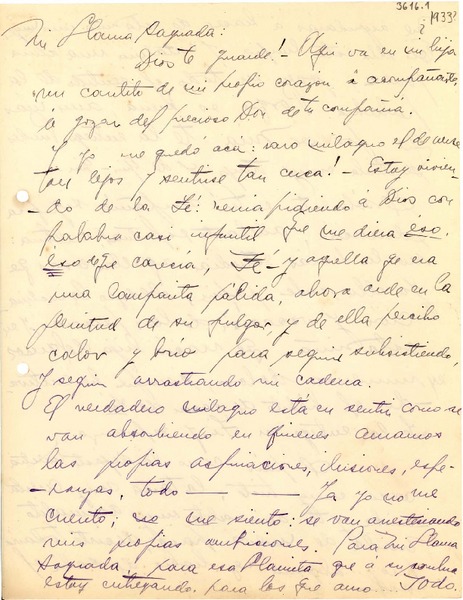 3616.1
¿1933?
Mi Llama Sagrada:
Dios te guarde! - Aquí va en mi hija
un cantito de mi propio corazón á acompañarte,
á gozar del precioso Don de tu compañía.
Y yo me quedo acá: raro milagro el de verse
tan lejos y sentirse tan cerca! - Estoy vivien-
do de la Fé: venía pidiendo á Dios con
palabra casi infantil que me diera eso,
eso de que carecía, Fé - y aquella que era
una lamparita pálida, ahora arde en la
plenitud de su fulgor y de ella percibo
calor y brío para seguir subsistiendo,
y seguir arrastrando mi cadena.
El verdadero milagro está en sentir como se
van absorbiendo en quienes amamos
las propias aspiraciones, ilusiones, espe-
-ranzas, todo — — — Ya yo no me
cuento; no me siento: se van anestesiando
mis propias ambiciones. Para mi Llama
Sagrada; para esa Llamita que á su sombra
estoy entregando para los que amo... Todo.